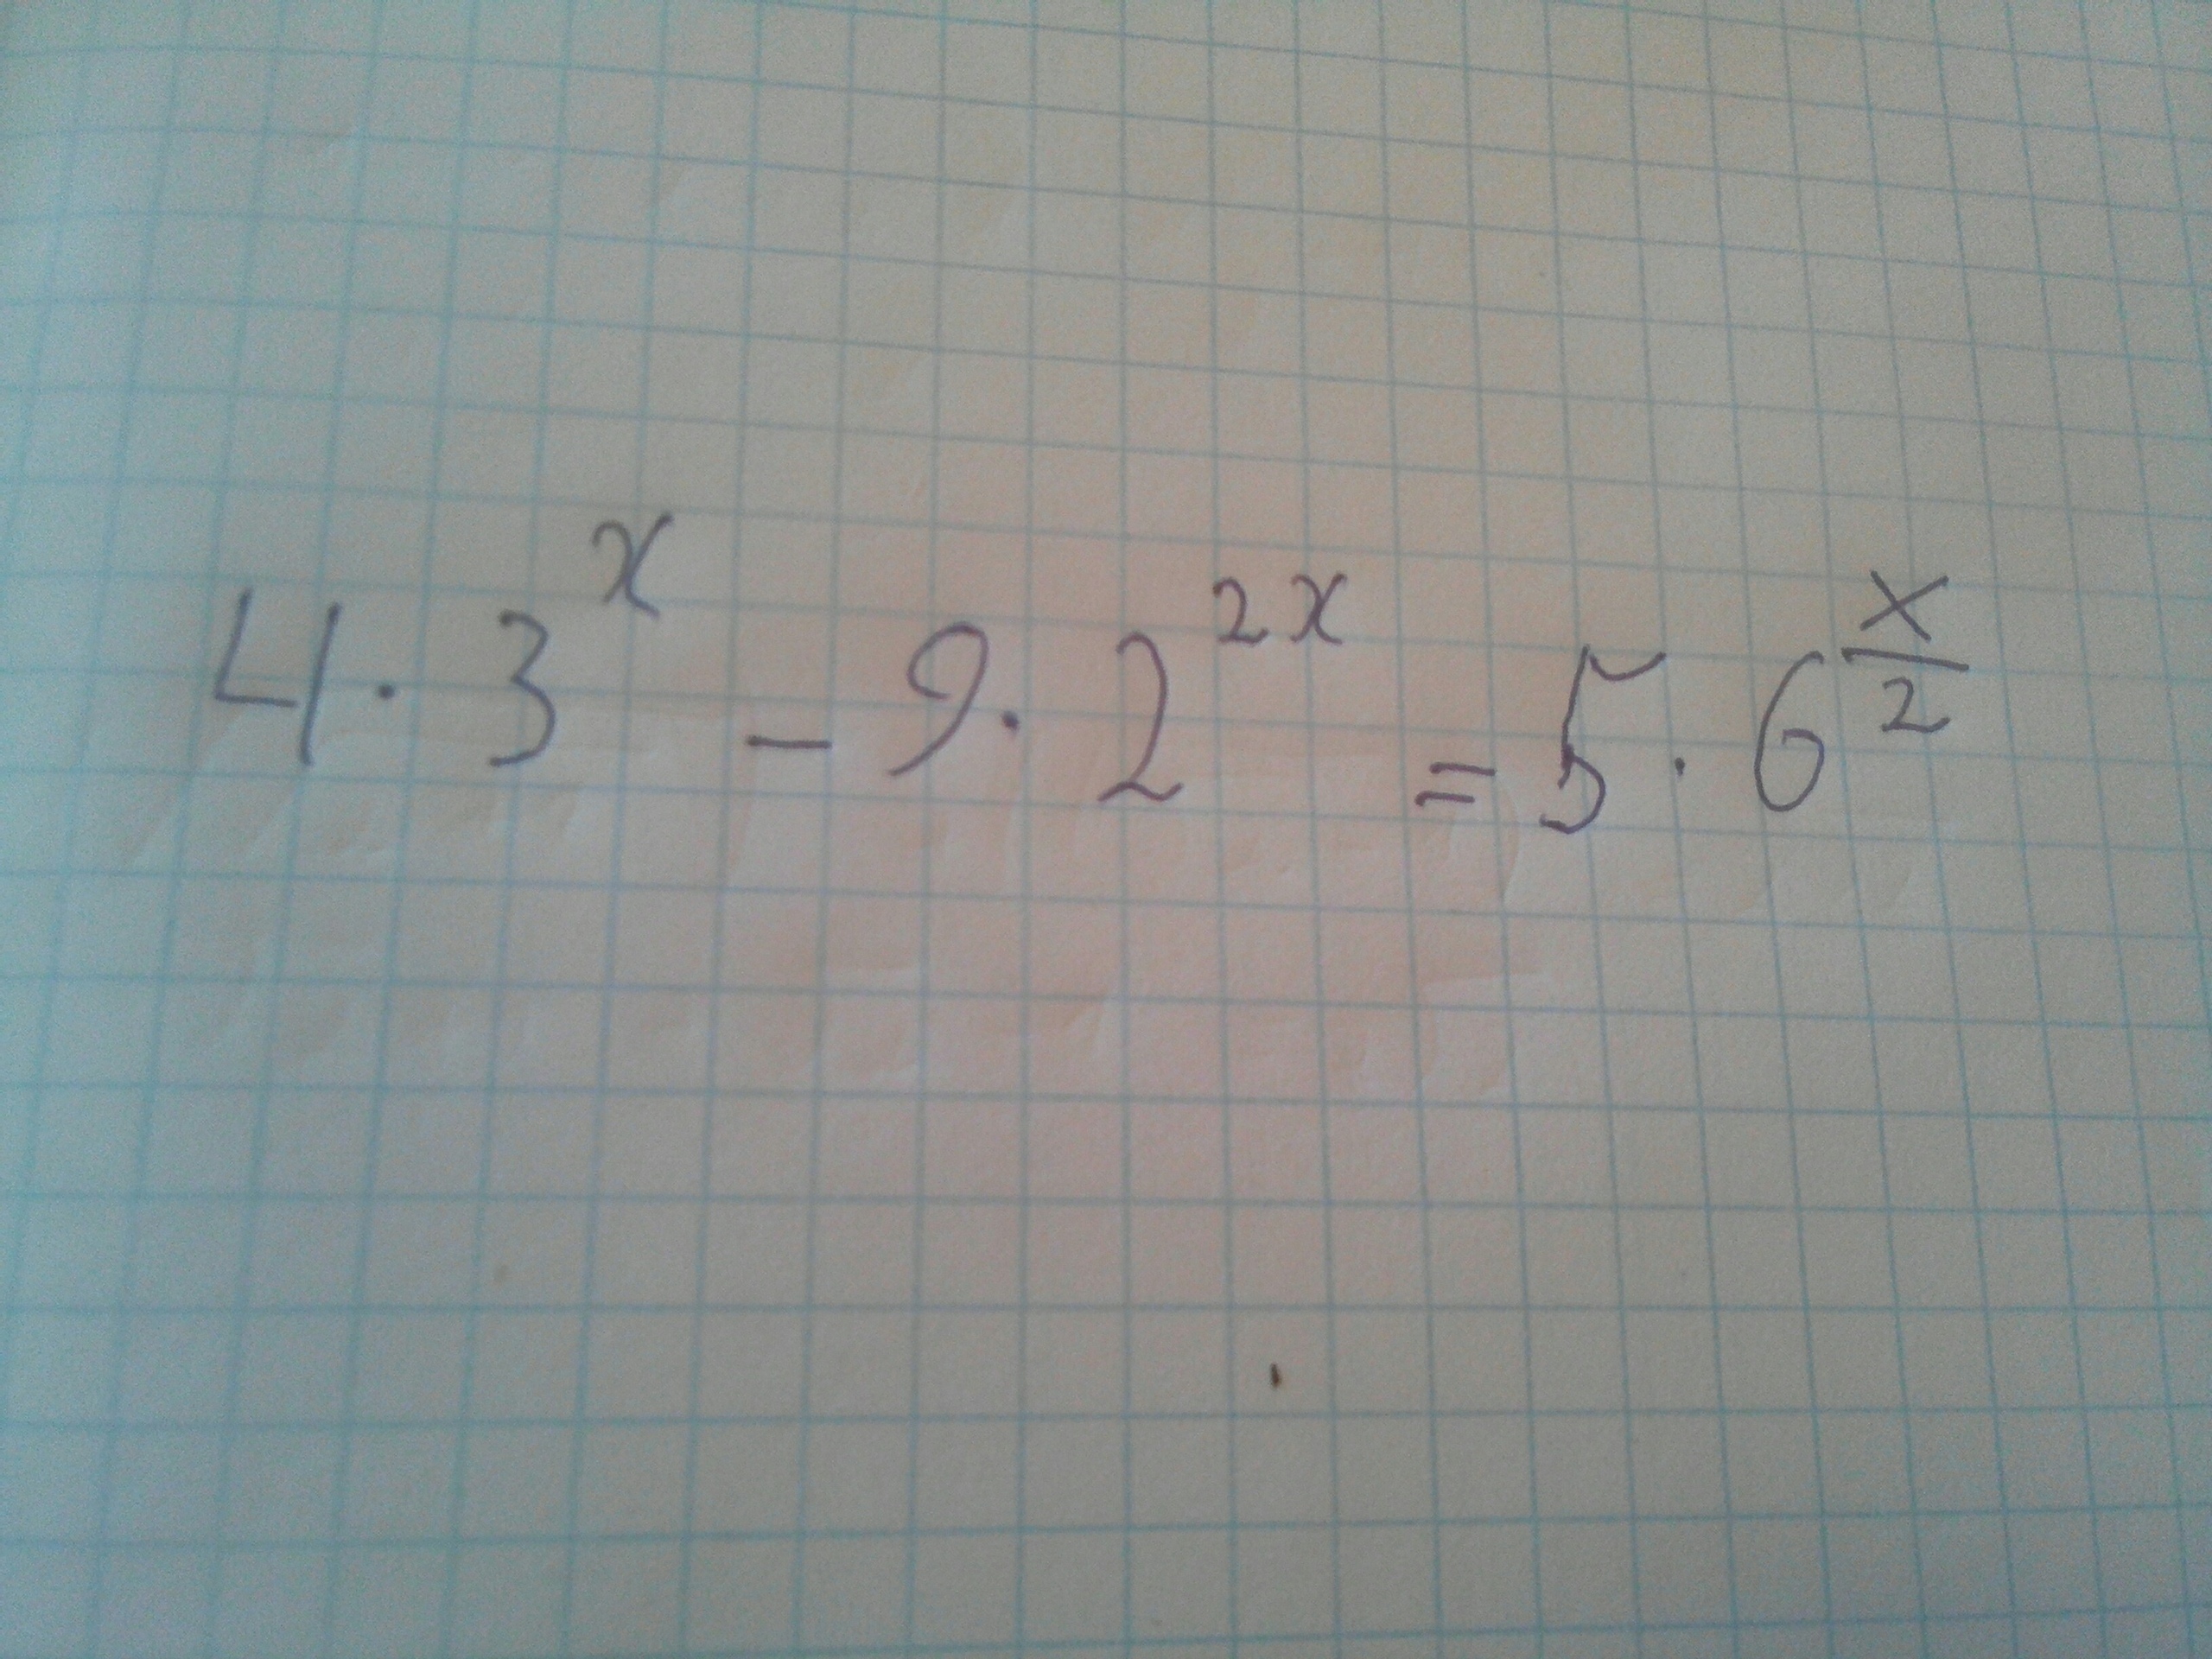 4 · 3^x - 9 · 2^{2x} = 5 · 6^{x/2}